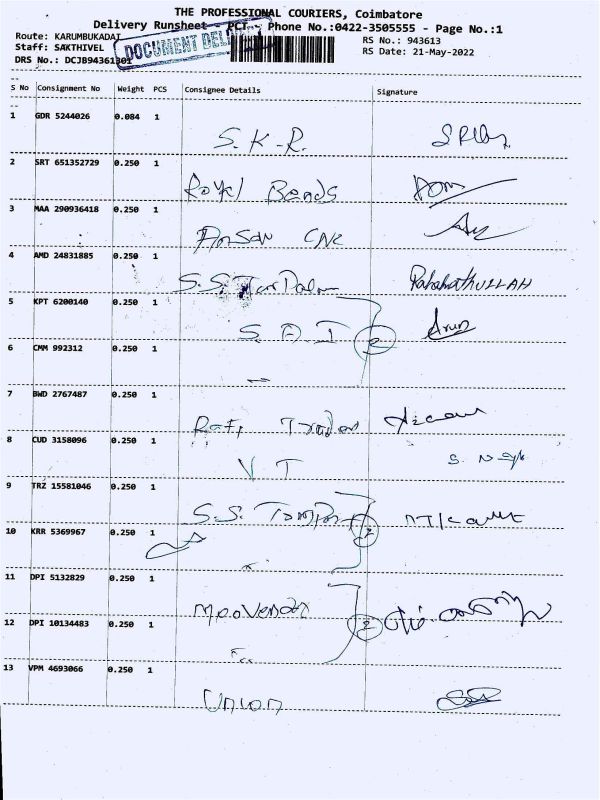 THE PROFESSIONAL COURIERS, Coimbatore
Delivery Runsheet - PCT - Phone No.:0422-3505555 - Page No.:1
Route: KARUMBUKADAI
RS No.: 943613
Staff: SAKTHIVEL
RS Date: 21-May-2022
DRS No.: DCJB94361301
DOCUMENT
S No Consignment No Weight PCS Consignee Details Signature
1 GDR 5244026 0.084 1
S.K.R.
2 SRT 651352729 0.250 1
Royal Bends
3 MAA 290936418 0.250 1
CNC
4 AMD 24831885 0.250 1
S.S. RahamathULLAH
5 KPT 6200140 0.250 1
S. A I 2 Arun
6 CMM 992312 0.250 1
7 BWD 2767487 0.250 1
Rafi Traders
8 CUD 3158096 0.250 1
V T
9 TRZ 15581046 0.250 1
S.S. 2
10 KRR 5369967 0.250 1
11 DPI 5132829 0.250 1
Moovendar 2
12 DPI 10134483 0.250 1
13 VPM 4693066 0.250 1
Union